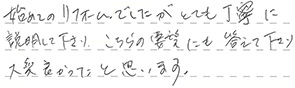 始めてのリフォームでしたがとても丁寧に
説明して下さり、こちらの要望にも答えて下さり
大変良かったと思います。